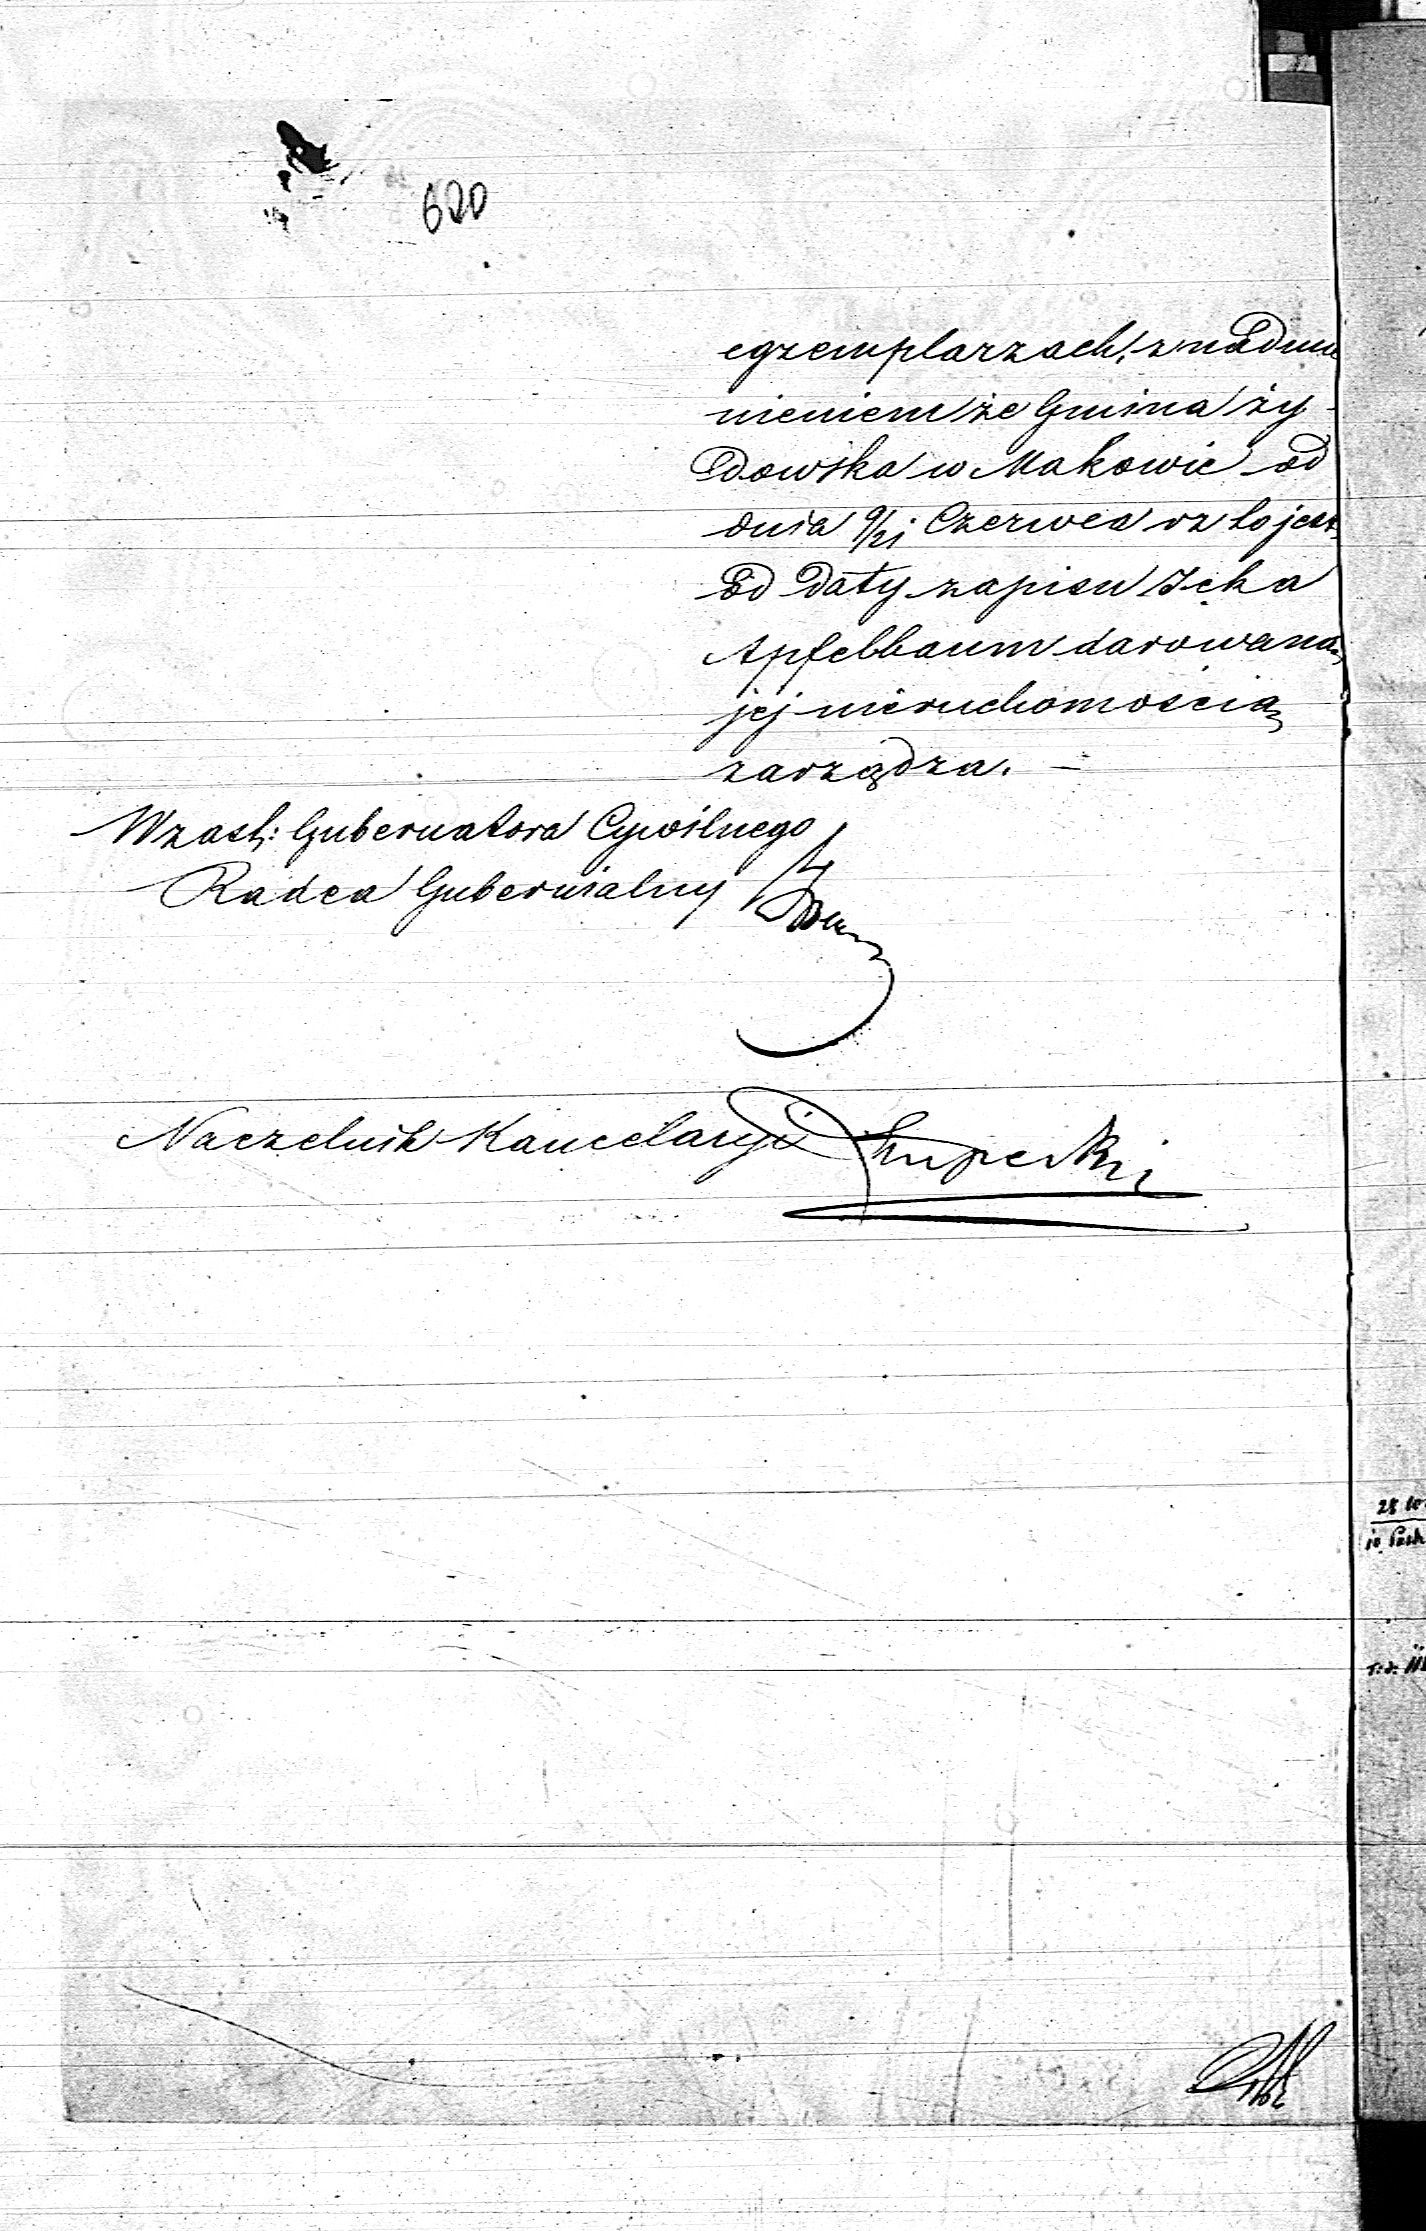 620
egzemplarzach, z nadmie
nieniem że Gmina ży-
dowska w Makowie od
dnia 9/21 Czerwca rz to jest
od daty zapisu Icka
Apfelbaum darowaną
jej nieruchomością
zarządza. —
W zast: Gubernatora Cywilnego
Radca Gubernialny
Naczelnik Kancelaryi